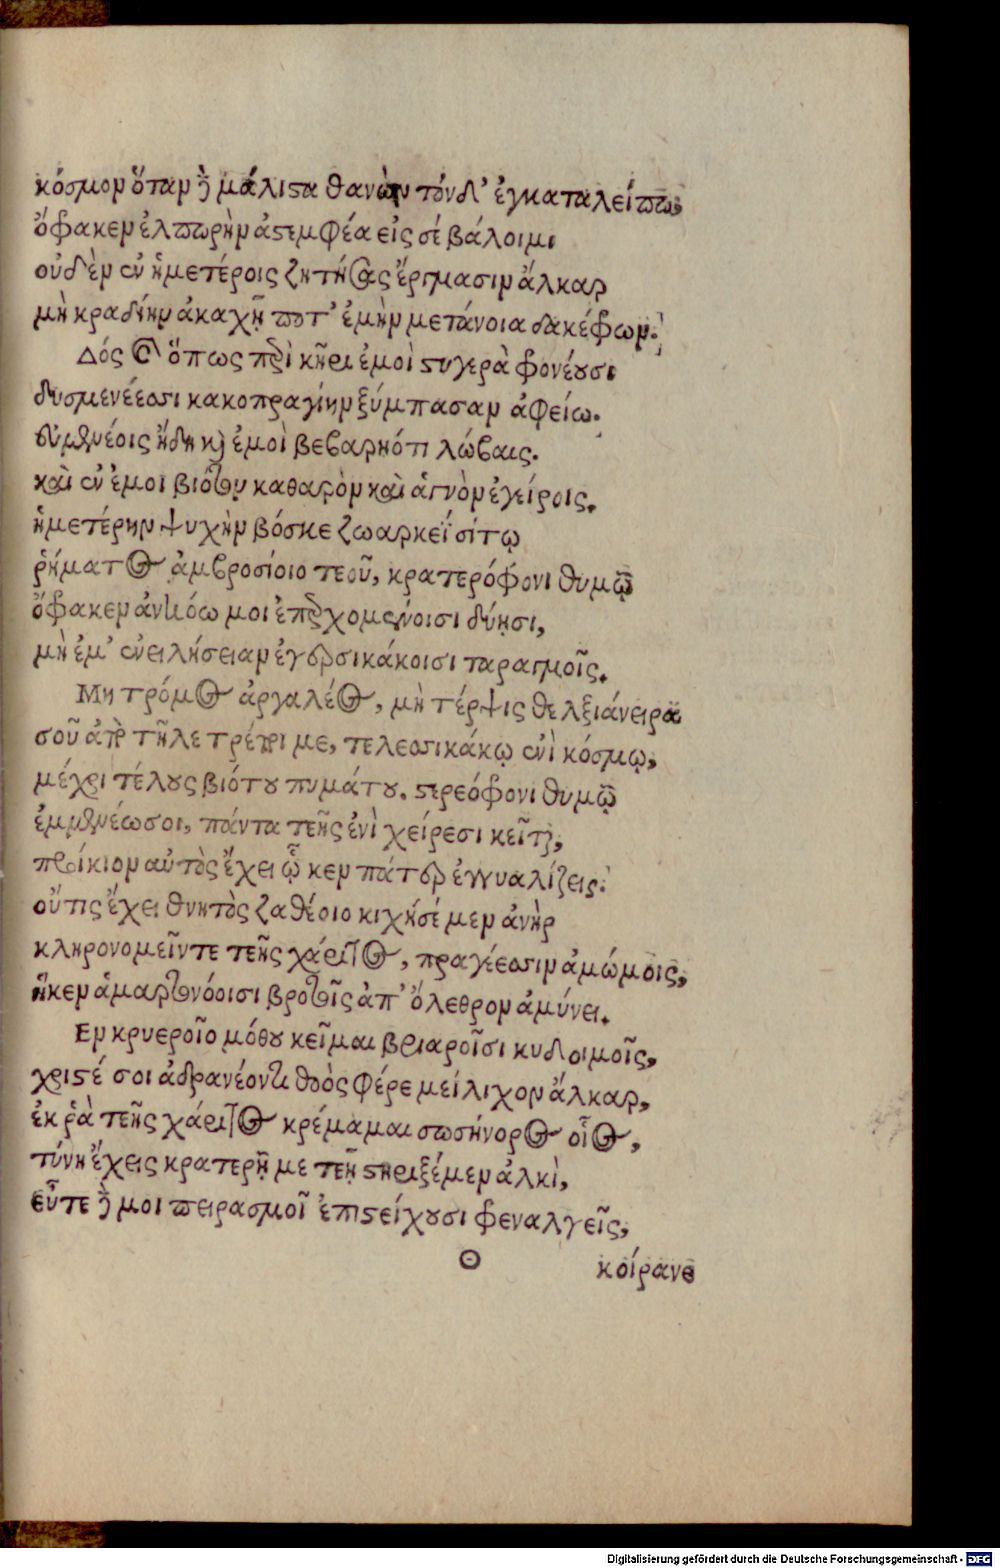 κόσμον ὅταν ᾖ μάλιστα θανὼν τόνδ’ ἐγκαταλείπω,
ὄφρα κεν ἐλπωρὴν ἀστεμφέα εἰς σέ βάλοιμι
οὐδὲν ἐν ἡμετέροις ζητήσας ἔργμασιν ἄλκαρ
μὴ κραδίην ἀκαχῇ ποτ’ ἐμὴν μετάνοια δακέφων.
Δός ὅπως κῆρι ἐμοὶ στυγερὰ φονέουσι
δυσμενέεσσι κακοπραγίην ξύμπασαν ἀφείω.
ἤδη καὶ ἐμοὶ βεβαρηότι λώβαις.
καὶ ἐν ἐμοι βιότου καθαρὸν καὶ ἁγνὸν ἐγείροις.
ἡμετέρην ψυχὴν βόσκε ζωαρκεῖ σίτῳ
ῥήματος ἀμβροσίοιο τεοῦ, κρατερόφρονι θυμῷ
ὄφρα κεν μοι ἐπερχομένοισι δύῃσι,
μὴ ἐμ’ ἐνειλήσειαν ἐγερσικάκοισι ταραγμοῖς.
Μη τρόμος ἀργαλέος, μὴ τέρψις θελξιάνειρα
σοῦ τῆλε τρέποι με, τελεσσικάκῳ ἐνὶ κόσμῳ,
μέχρι τέλους βιότου πυμάτου. στερεόφρονι θυμῷ
πάντα τεῇς ἐνὶ χείρεσι κεῖται,
προίκιον αὐτὸς ἔχει ᾧ κεν πάτερ ἐγγυαλίζεις.
οὔτις ἔχει θνητὸς ζαθέοιο κιχήσέμεν ἀνὴρ
κληρονομεῖν τε τεῆς χάριτος, πραγέεσσιν ἀμώμοις,
ἥ κεν ἁμαρτονόοισι βροτοῖς ἀπ’ ὄλεθρον ἀμύνει.
Εν κρυεροῖο μόθου κεῖμαι βριαροῖσι κυδοιμοῖς,
χριστέ σοι ἀδρανέοντι θοὸς φέρε μείλιχον ἄλκαρ,
ἐκ ῥὰ τεῆς χάριτος κρέμαμαι σωσήνορος οἶος,
τύνη ἔχεις κρατερῇ με τεῇ στηριξέμεν ἀλκὶ,
εὖτε ᾖ μοι πειρασμοῖ ἐπιστείχουσι φρεναλγεῖς,
Θ κοίρανε
Digitalisierung gefördert durch die Deutsche Forschungsgemeinschaft - DFG